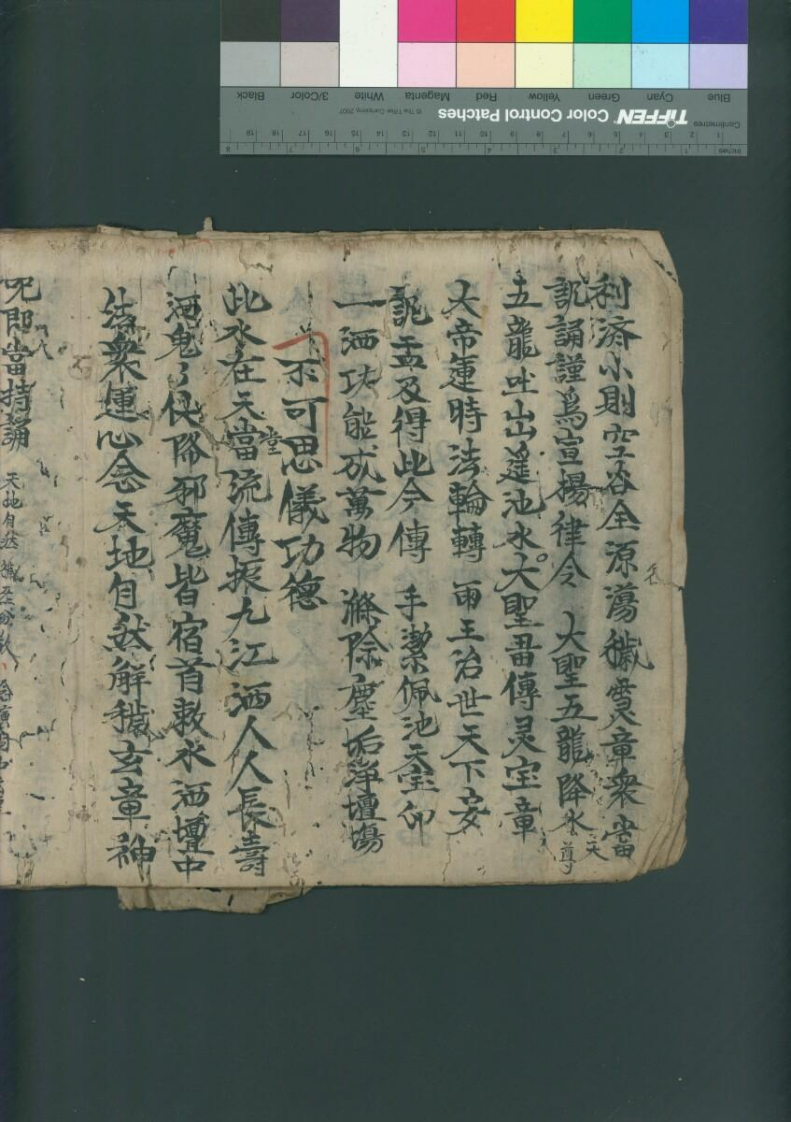 利済小則空谷全源蕩穢灵章衆當
訛誦謹爲宣揚律令 大聖五龍降水天尊
五龍吐出遥池水大聖畱傳灵宝章
大帝運時法輪轉 雨王治世天下安
訛盂及得此今傳 手潔佩池天宝仰
一洒功能成萬物 滌除塵垢淨壇場
不可思儀功德
此水在天當堂流傳振九江洒人人長壽
洒鬼了伏降邪魔皆宿首敕水洒壇中
法衆運心念天地自然解穢玄章神
咒即當持誦 天地自然
Inches
Centimetres
TIFFEN Color Control Patches
© The Tiffen Company, 2007
Blue Cyan Green Yellow Red Magenta White 3/Color Black